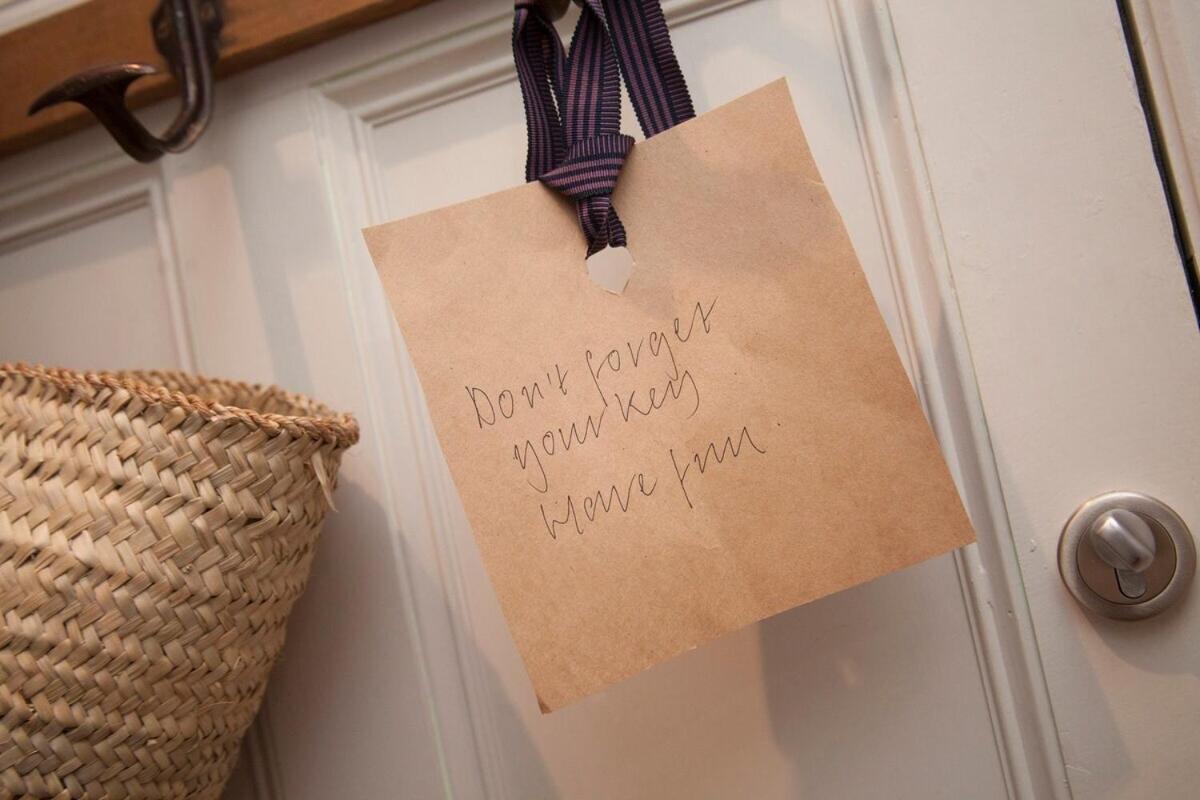 Don't forget
your key
Have fun.